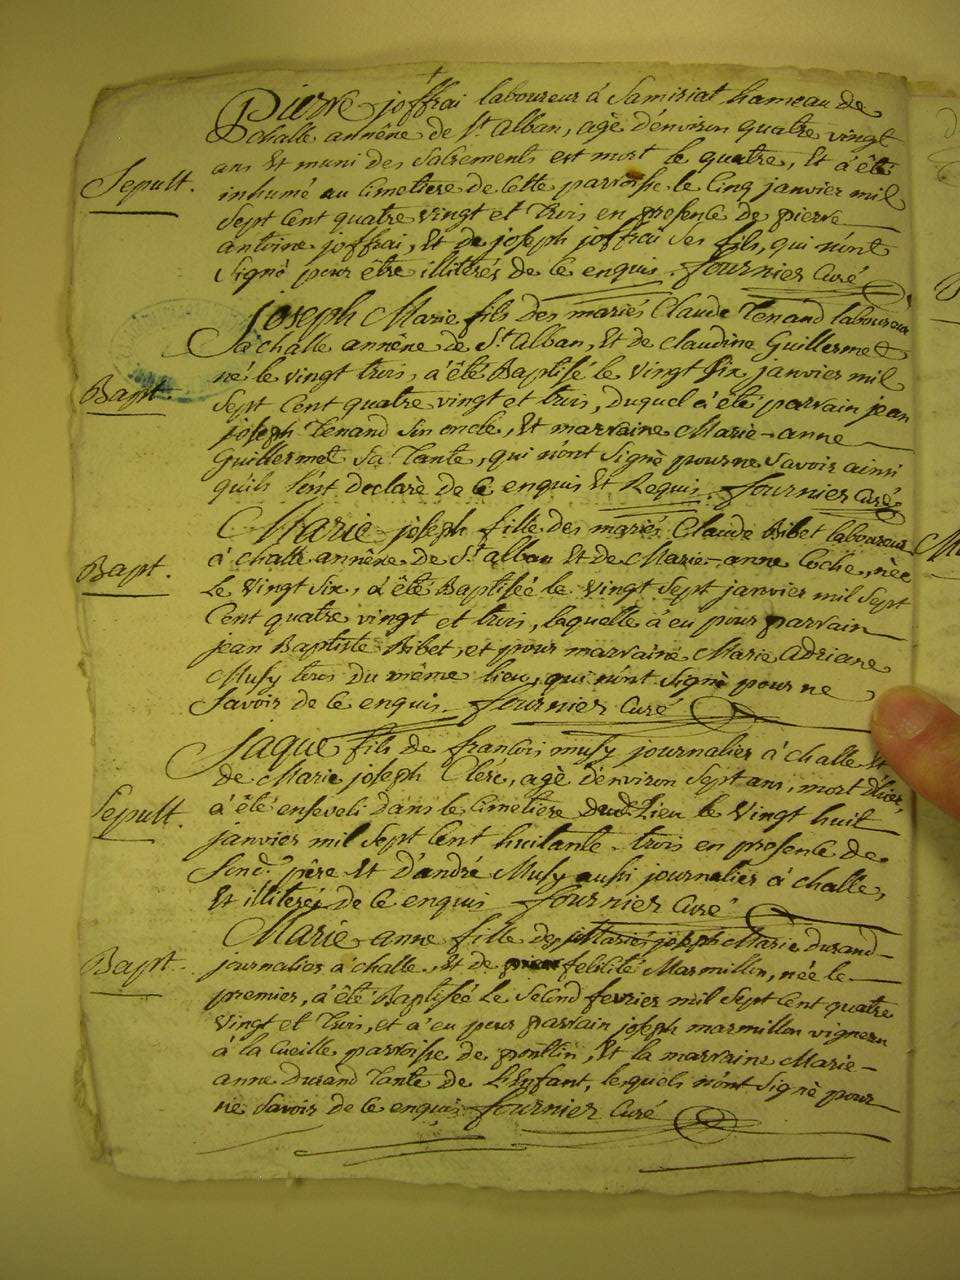 Pierre joffrai laboureur à Samiriat hameau de
challe annéxe de St. alban, agè d'environ quatre vingt
ans Et muni des Sacrements est mort le quatre, Et à èté
Sepult.
inhumé au Cimetiere de Cette parroisse le Cinq janvier mil
Sept Cent quatre vingt et trois en presence de pierre
antoine joffrai, Et de joseph joffrai Ses fils, qui n'ont
Signè pour être illiterés de Ce enquis. fournier Curé
Joseph Marie fils des mariés Claude Tenand laboureur
à challe annéxe de St. alban, Et de Claudine Guillermet
né le vingt trois, a èté Baptisé le vingt six janvier mil
Bapt.
Sept Cent quatre vingt et trois, duquel a èté parrain jean
joseph Tenand son oncle, Et marraine Marie-anne
Guillermet Sa Tante, qui n'ont Signè pour ne Savoir ainsi
qu'ils l'ont declaré de Ce enquis Et Requis. fournier Curé
Marie joseph fille des mariés Claude Bibet laboureur
à challe annéxe de St. alban Et de Marie-anne Coche, nèe
Bapt.
Le Vingt Six, à èté Baptisée le Vingt Sept janvier mil Sept
Cent quatre vingt et trois, laquelle à eu pour parrain
jean Baptiste Bibet, et pour marraine Marie Adriane
Musy tous du même lieu, qui n'ont Signè pour ne
Savoir de Ce enquis. fournier Curé
Jaque fils de francois musy journalier à challe Et
de Marie joseph Clèrc, agè d'environ Sept ans, mort d'hier,
Sepult.
à èté enseveli dans le Cimetière dud. Lieu le Vingt huit
janvier mil Sept Cent huitante trois en presence de
Sond. père Et d'andré Musy aussi journalier à challe,
Et illiterés de Ce enquis fournier Curé
Marie anne fille des Mariés joseph Marie durand
Bapt.
journalier à challe, Et de felicité Marmillon, née le
premier, à èté Baptisée le Second fevrier mil Sept Cent quatre
Vingt et Trois, et à eu pour parrain joseph marmillon vigneron
à la Cueille parroisse de pontlin, Et la marraine Marie-
anne durand Tante de L'Enfant, lequels n'ont Signè pour
ne Savoir de Ce enquis fournier Curé